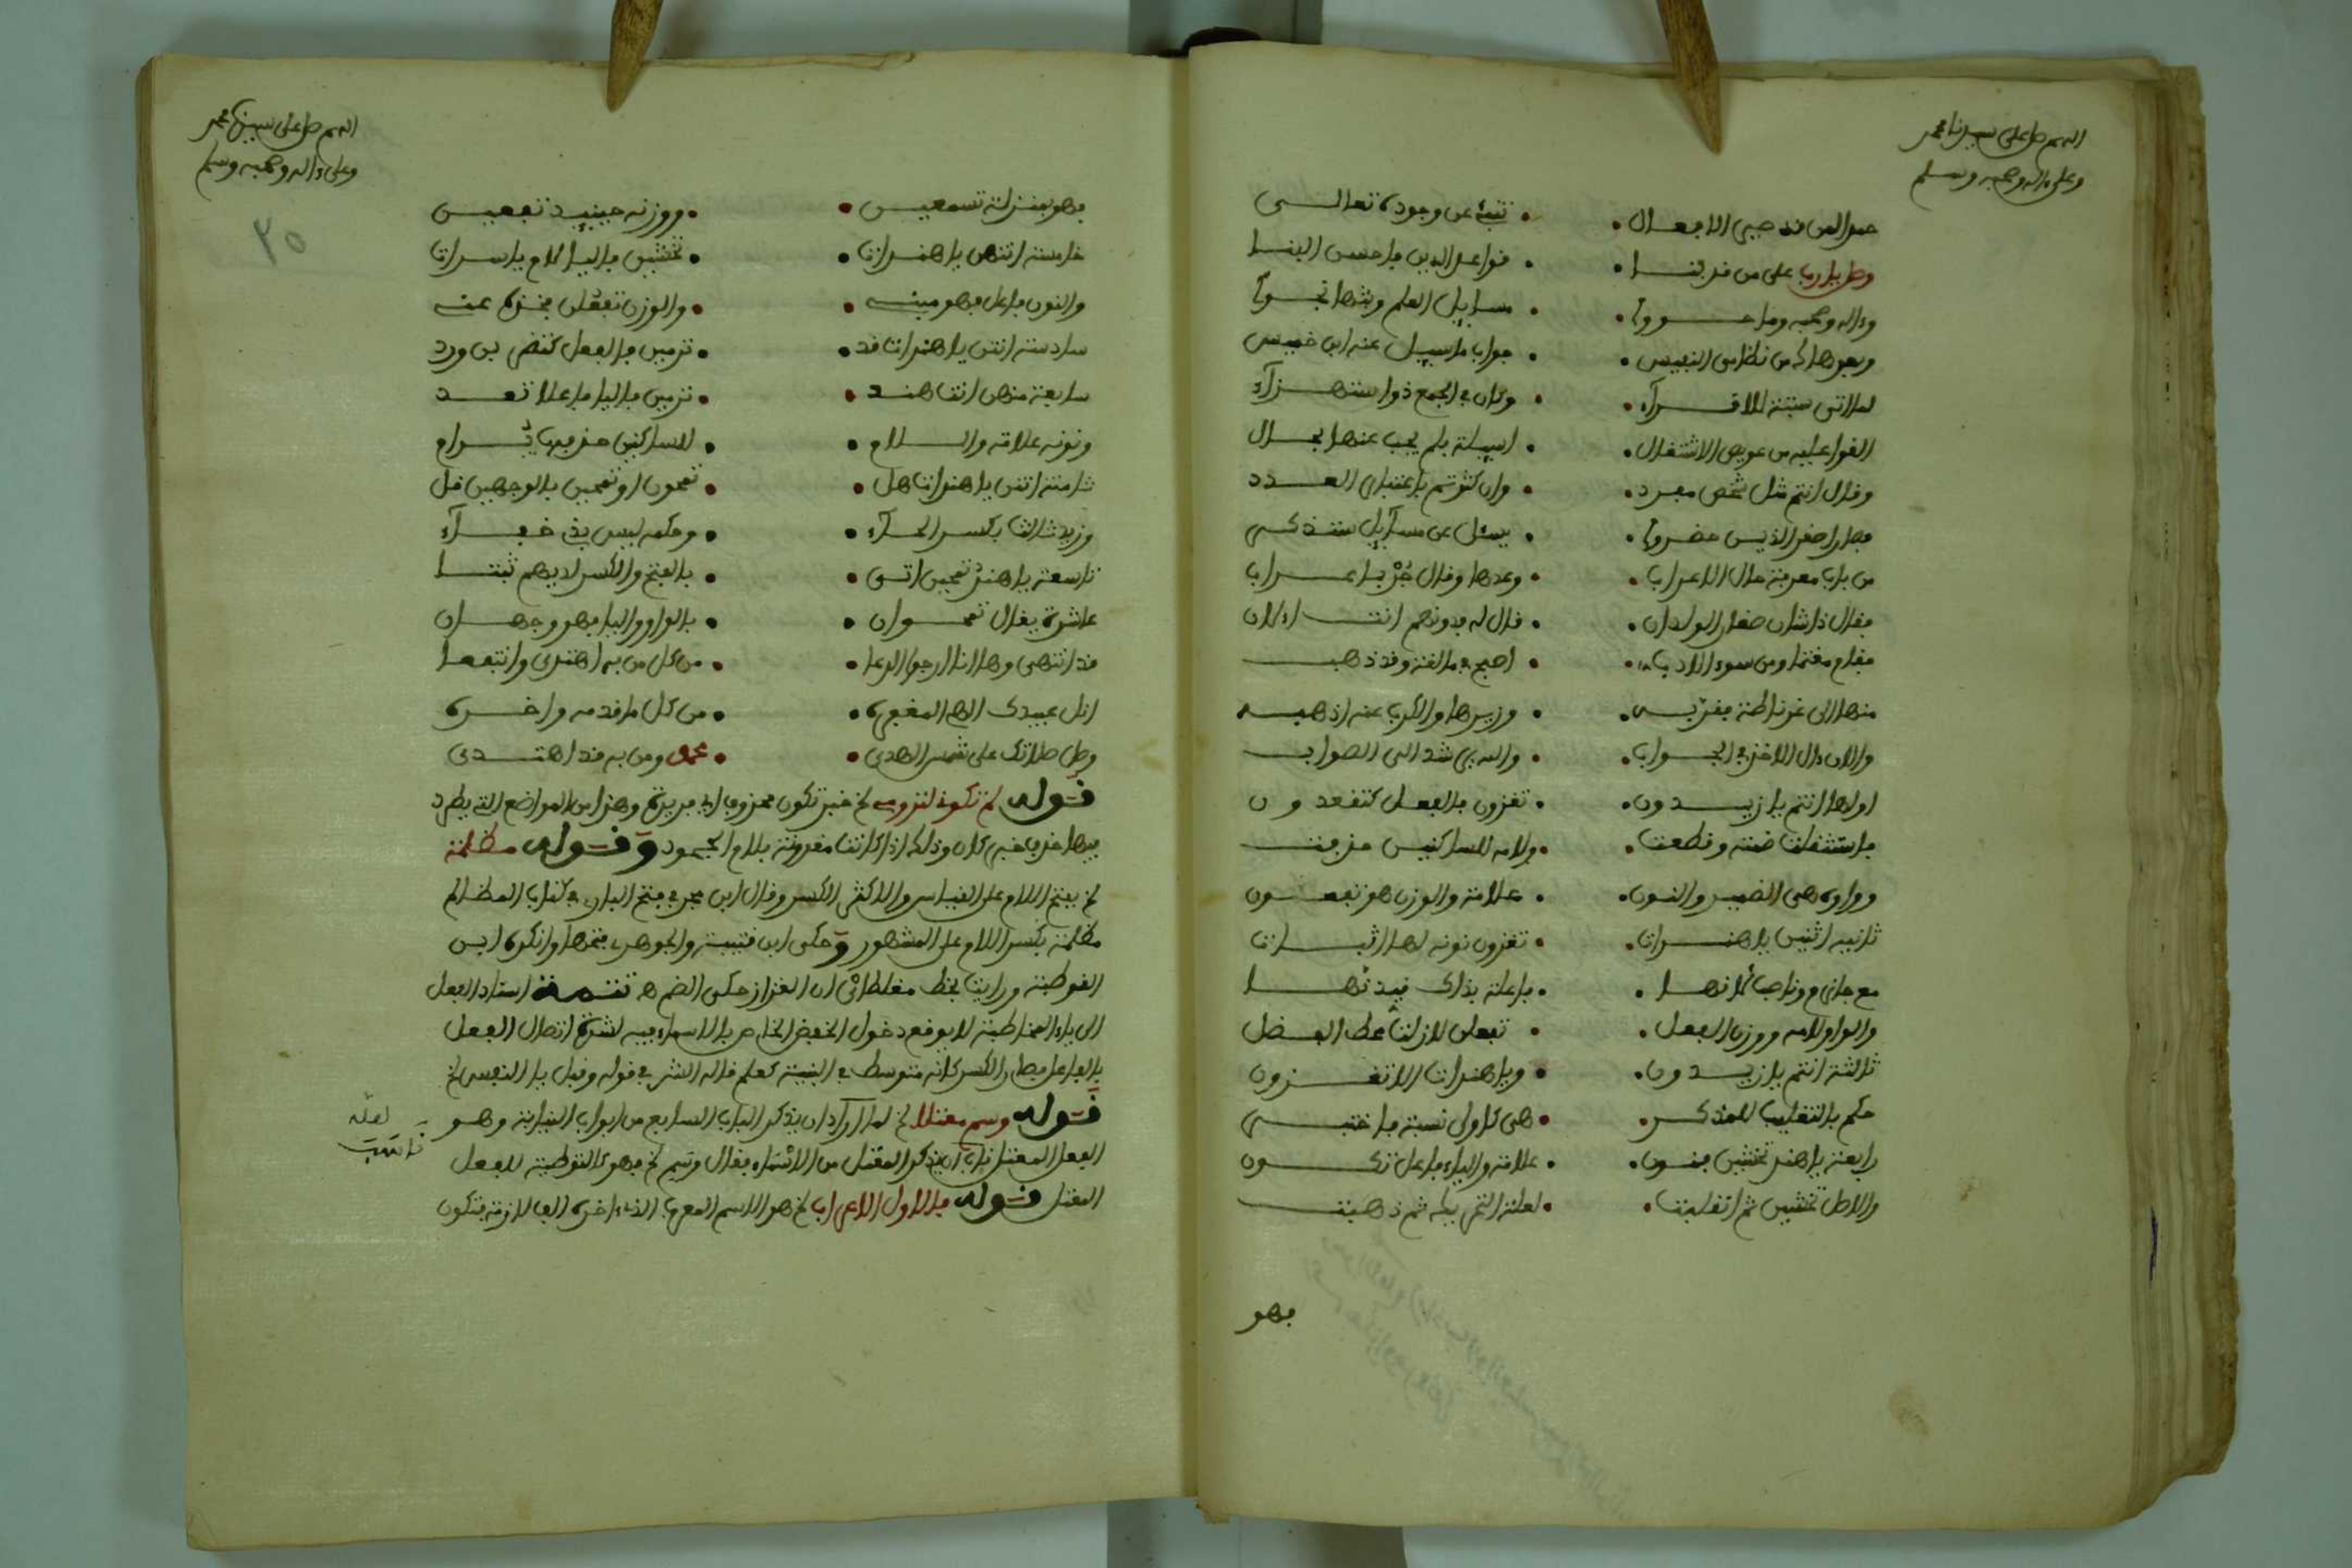 اللهم صل على سيدنا محمد
وعلى ءاله وصحبه وسلم
حمدا لمن قد صير الافعال • تنبئ عن وجوده تعالى
وصل يا رب على من قد بنا • قواعد الدين باحسن البنا
وءاله وصحبه وما حووا • مسايل العلم وشها نحوا
وبعد هاك من نظامي النفيس • جواب ما سيل عنه ابن خميس
لما اتى سبتة للاقراء • وكان في الجمع ذوا استهزاء
القوا عليه من عويص الاشتغال • اسيلة فلم يجب عنها بحال
وقال انتم مثل شخص مفرد • وان كثرتم باعتبار العدد
فجاء اصغر الذين حضروا • يسئل عن مسآيل ستذكر
من باب معرفة حال الاعراب • وعدها وقال جئ باعراب
فقال ذا شان صغار الولدان • قال له فدونهم انت الان
فقام مغتما ومن سوء الادب • اصبح في مالقة وقد ذهب
منها الى غرناطة فقربه • وزيرها والكرب عنه اذهبه
والان ءان الاخذ في الجواب • والله يرشد الى الصواب
اولها انتم يا زيدون • تغزون بالفعل كتقعدون
فاستثقلت ضمة وقطعت • ولامه للساكنين حذفت
وواوه هي الضمير والنون • علامة والوزن هو تفعون
ثانيه انتن يا هندات • تغزون نونه لها اثبات
مع جازم وناصب لانها • فاعلة بذاك قيدنها
والواو لامه ووزن الفعل • تفعلن لازلت محط الفضل
ثالثة انتم يا زيدون • ويا هندات الا تغزون
حكم بالتغليب للمذكر • هي كاولى نسبة فاختبر
رابعة يا هند تخشين فنون • علامة والياء فاعل تكون
والاصل تخشيين ثم انقلبت • لعلة التحريك ثم ذهبت
فهو
اللهم صل على سيدنا محمد
وعلى ءاله وصحبه وسلم
٢٥
فهو بمنزلة تسمعين • ووزنه حينيذ تفعين
خامسة انتن يا هندات • تخشين فاليا لام يا سرات
والنون فاعل فهو مبنى • والوزن تفعلن فخذه عنى
سادسة انتن يا هندات قد • ترمين فالفعل كتضربن ورد
سابعة منهن انت هند • ترمين فاليا فاعلا تعد
ونونه علامة والسلام • للساكنين حذفها يرام
ثامنة انتن يا هندات هل • تمحون او تمحين بالوجهين قل
وزيد ثالث بكسر الحآء • وحكمه ليس بذي خفآء
تاسعة يا هند تمحين اتى • بالفتح والكسر لديهم ثبتا
عاشرة يقال تمحوان • بالواو واليا فهو وجهان
قد انتهى وها انا ارجوا الدعا • من كل من به اهتدى وانتفعا
انل عبيدك الهي المغفره • من كل ما قدمه واخره
وصل صلاتك على شمس الهدى • محمد ومن به قد اهتدى
قوله لم تكونى لترومى الخ خبر تكون محذوف اي مريدة وهذا من المواضع التي يطرد
فيها حذف خبر كان وذلك اذا كانت مقرونة بلام الجحود وقوله مظلمة
الخ بفتح اللام على القياس والاكثر الكسر وقال ابن حجر في فتح الباري في كتاب المظالم
مظلمة بكسر اللام على المشهور وحكى ابن قتيبة والجوهري فتحها وانكره ابن
القوطية ورايت بخط مغلطائى ان القزاز حكى الضم ه تتمة اسناد الفعل
الى ياء المخاطبة لا يوقع دخول الخفض الخاص بالاسماء فيه لشدة اتصال الفعل
بالفاعل فصار الكسر كانه متوسط في البنية كعلم قاله الشر في قوله وقبل يا النفس الخ
قوله وسم معتلا الخ لما اراد ان يذكر الباب السابع من ابواب النيابة وهو
الفعل المعتل ناب ان يذكر المعتل من الاسماء فقال وسم الخ فهو كالتوطية للفعل
المعتل قوله فالاول الاعراب الخ هو الاسم المعرب الذي ءاخره الف لازمة فتكون
لعله
ناسب